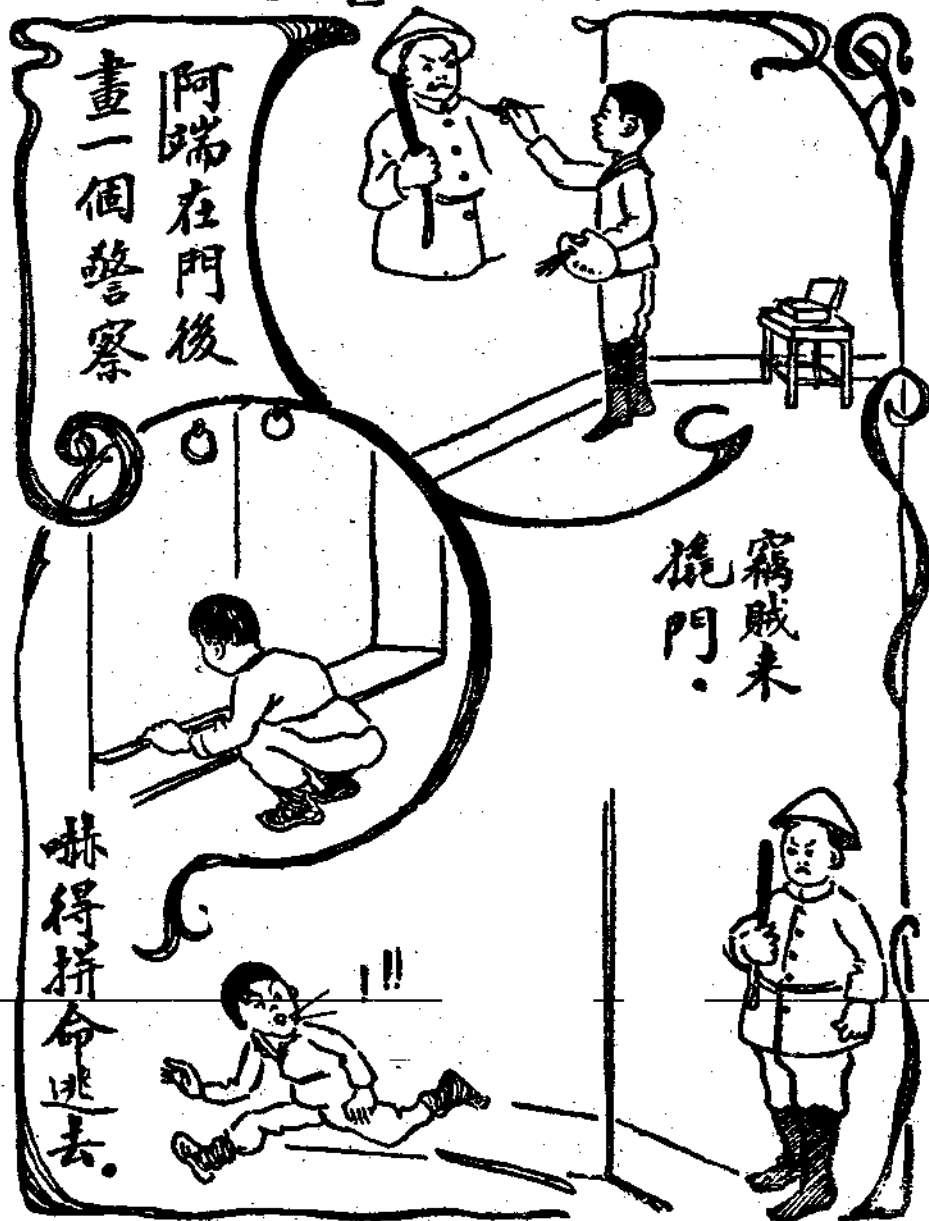 阿端在門後
畫一個警察
竊賊来
撬門．
嚇得拼命逃去．
!!!